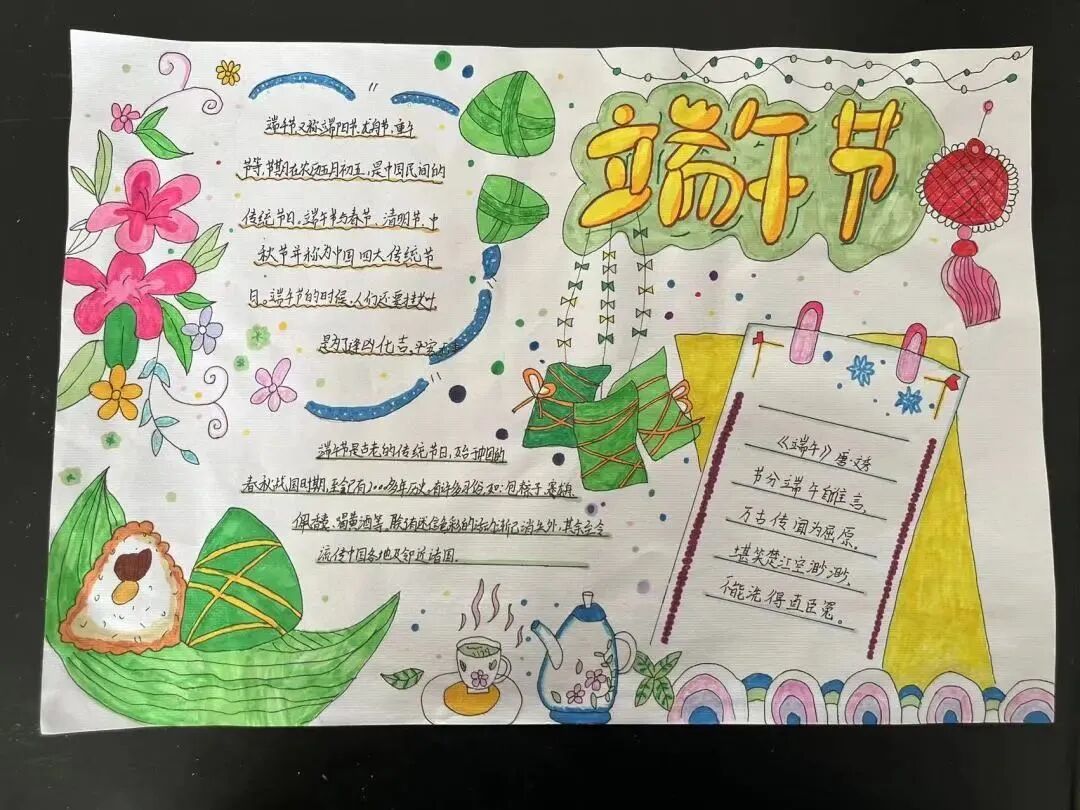 端午节
端午节又称端阳节、龙舟节、重午
节等,节期在农历五月初五,是中国民间的
传统节日。端午节与春节、清明节、中
秋节并称为中国四大传统节
日。端午节的时候,人们还要挂艾叶
是为了逢凶化吉,平安无事
端午节是古老的传统节日,始于中国的
春秋战国时期,至今已有2000多年历史。有许多习俗,如:包粽子、赛龙舟
佩香囊、喝黄酒等,
流传中国各地及邻近诸国。
《端午》唐·文秀
节分端午自谁言,
万古传闻为屈原。
堪笑楚江空渺渺,
不能洗得直臣冤。